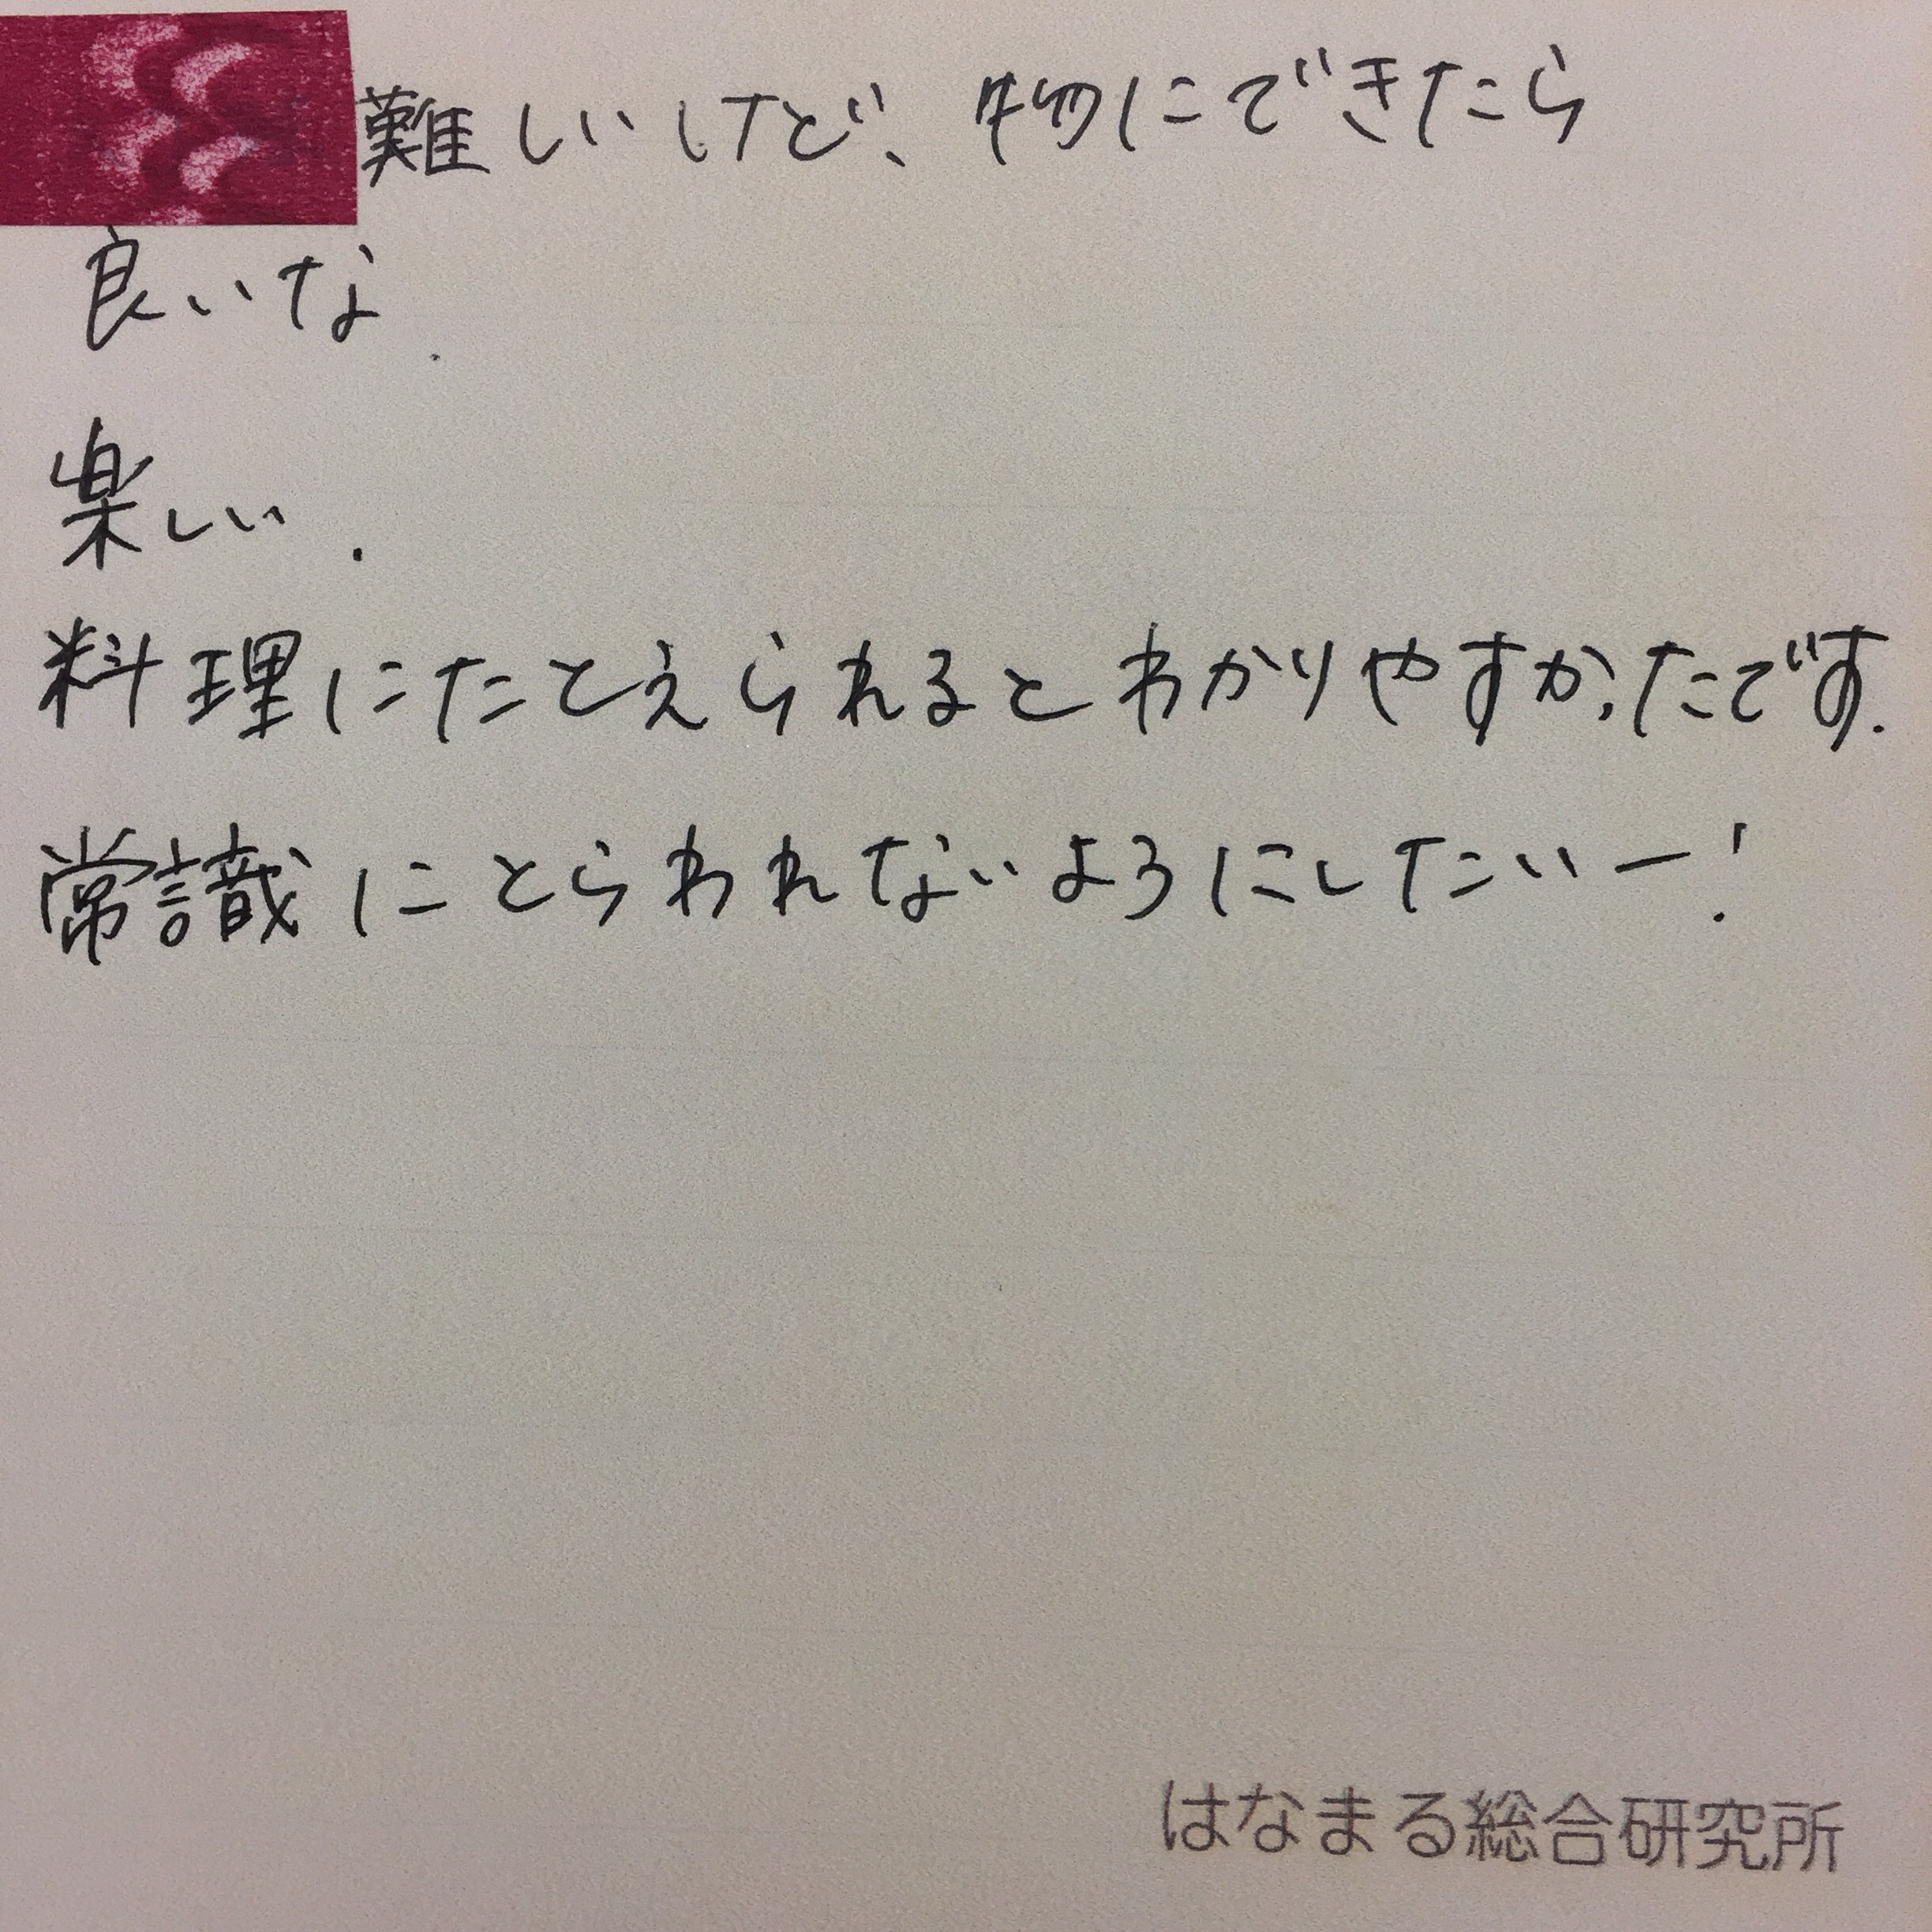 難しいけど、物にできたら
良いな.
楽しい.
料理にたとえられるとわかりやすかったです.
常識にとらわれないようにしたいー!
はなまる総合研究所